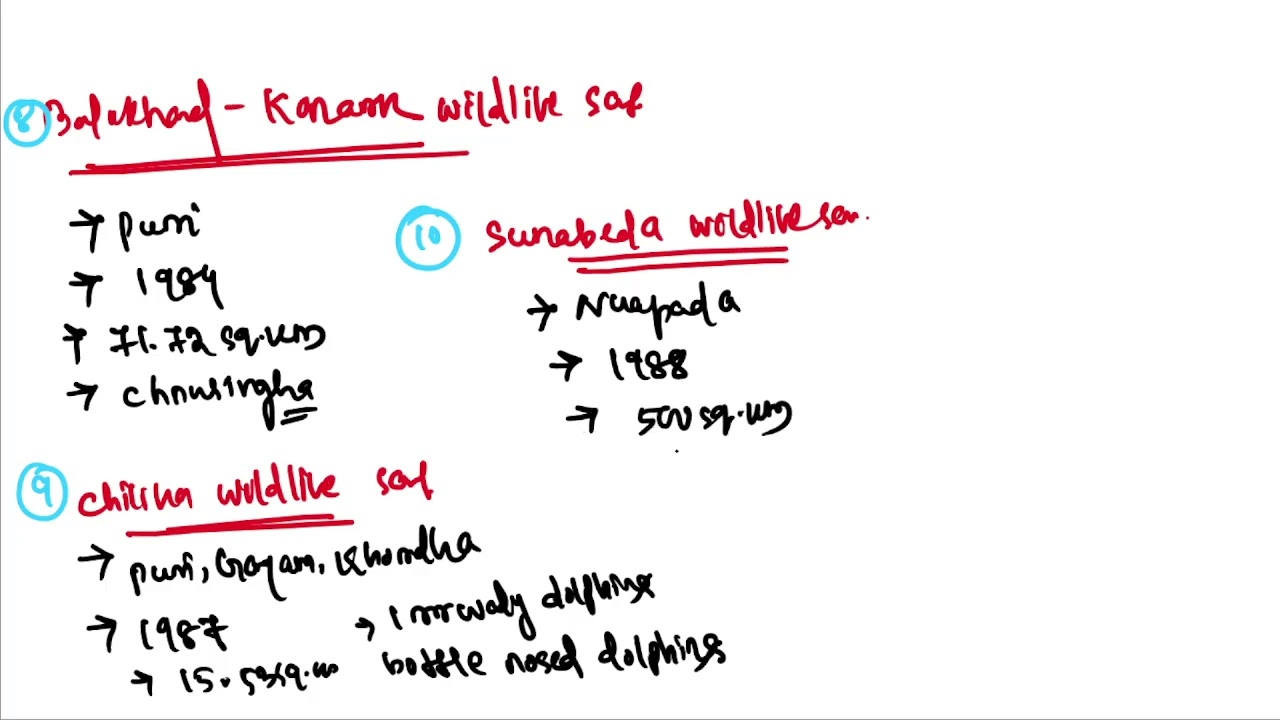 8 Balukhand - Konark wildlife saf
→ puri
→ 1984
→ 71.72 sq.km
→ chousingha
9 chilika wildlife saf
→ puri, Ganjam, Khordha
→ 1987
→ 15.53 sq.km
→ irrawady dolphins
bottle nosed dolphins
10 Sunabeda wildlife san.
→ Nuapada
→ 1988
→ 500 sq.km